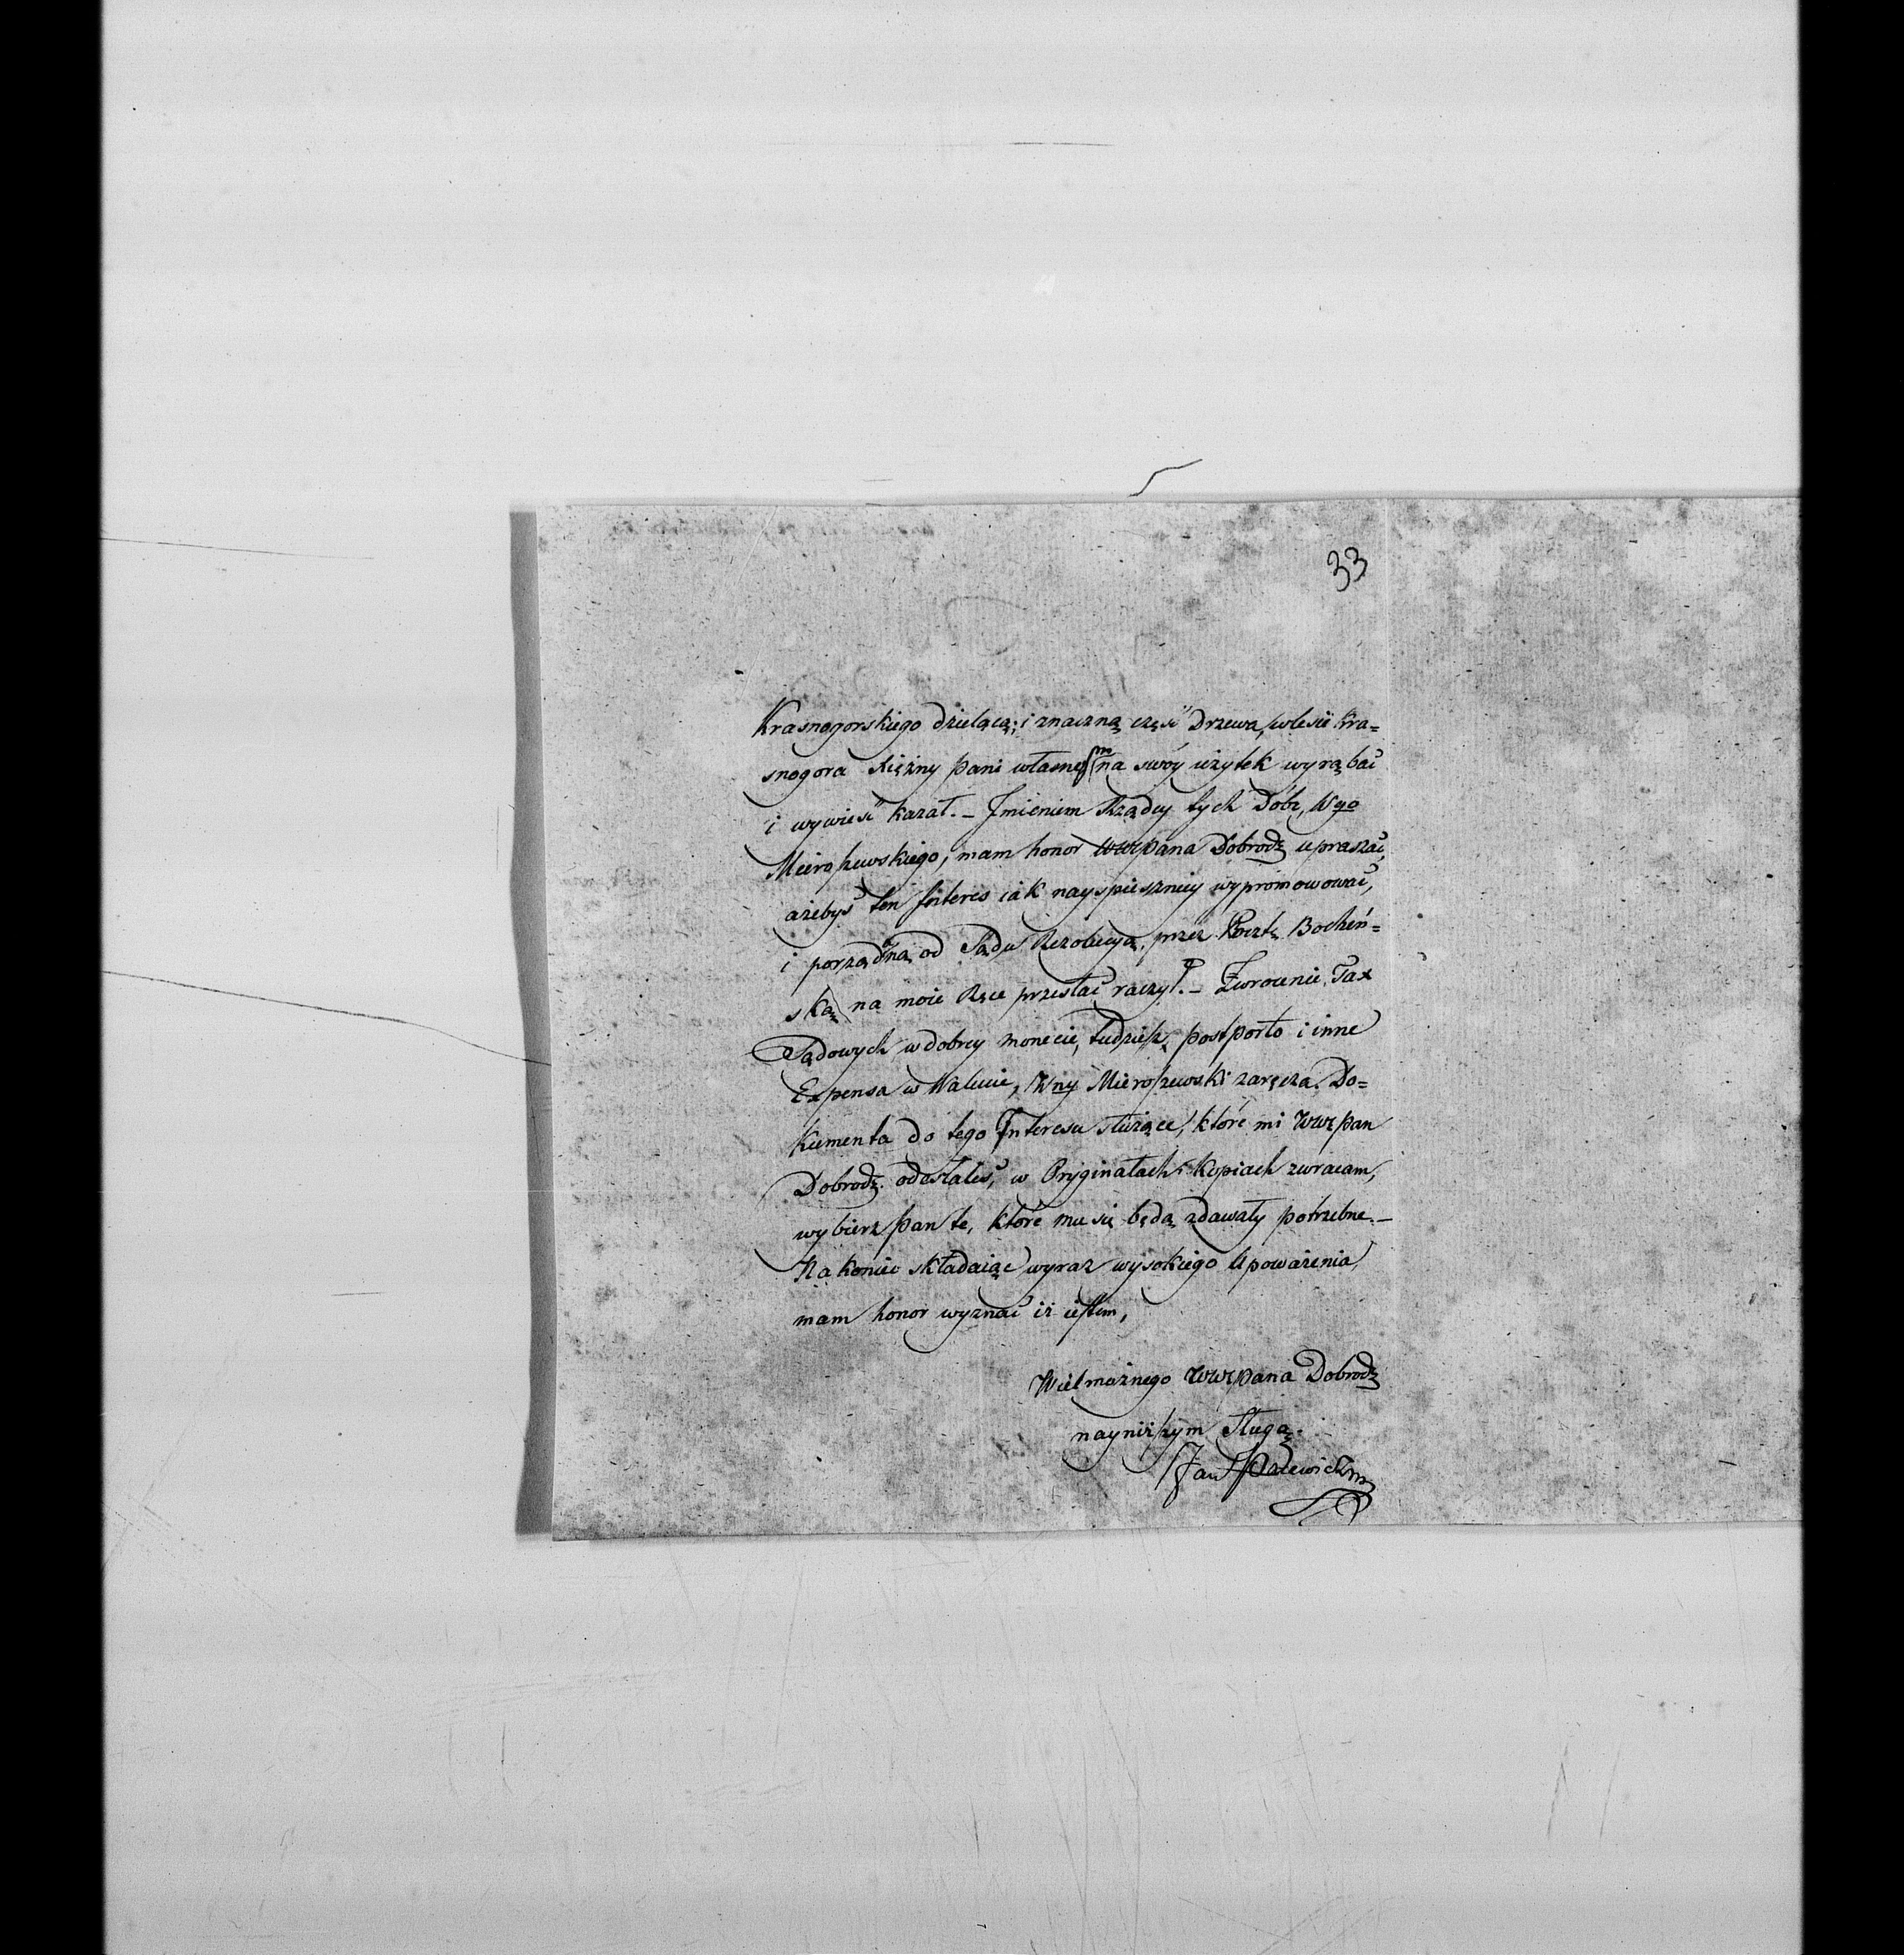 33
Krasnogorskiego dzielącą; i znaczną część Drzewa, w lesie Kra=
snogora Xiężny pani własnym na swóy użytek wyrąbać
i wywieść kazał. – Jmieniem Rządcy tych Dóbr, Wgo
Mieroszewskiego, mam honor WWPana Dobrodz upraszać,
ażebyś ten Jnteres iak nayspieszniey wypromowować,
i porządną od Sądu Rezolucyą, przez Pocztę Bocheń=
ską na moie Ręce przesłać raczył. – Zwrocenie Tax
Sądowych w dobrey monecie, tudzież postporto i inne
Expensa w Walucie, Wny Mieroszewski zaręcza. Do=
kumenta do tego Jnteresu służące, które mi WWPan
Dobrodz. odesłałeś, w Oryginałach i Kopiach zwracam,
wybierz pan te, które mu się będą zdawały potrzebne. –
Na koniec składaiąc wyraz wysokiego Upoważenia
mam honor wyznać iż iestem,
Wielmożnego WWPana Dobrodz
nayniższym Sługą.
Jan